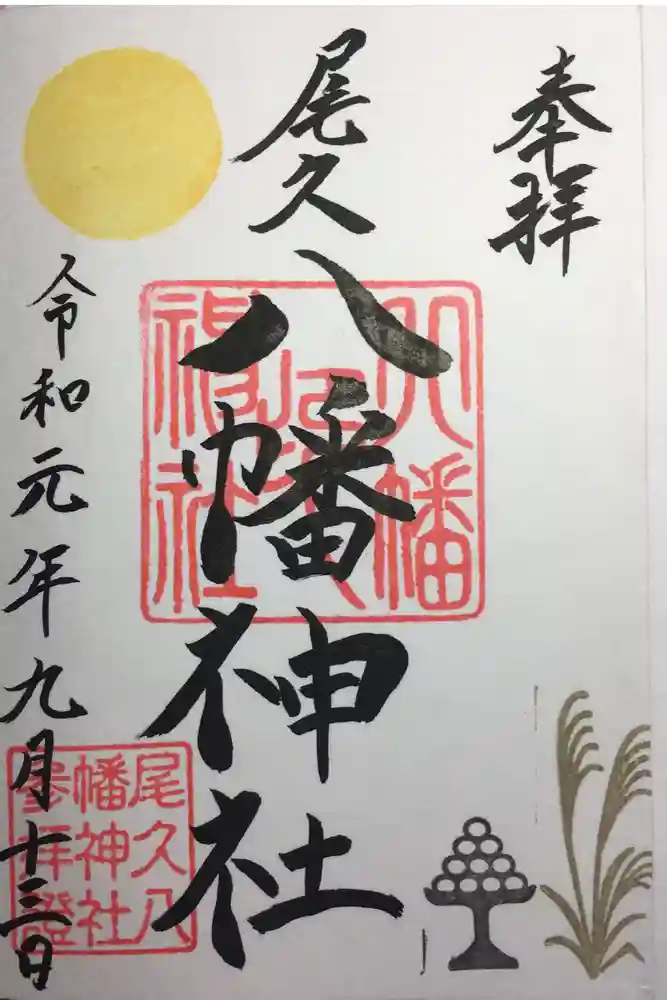 奉拝
尾久
八幡神社
令和元年九月十三日
八幡
神社
尾久八
幡神社
参拝證